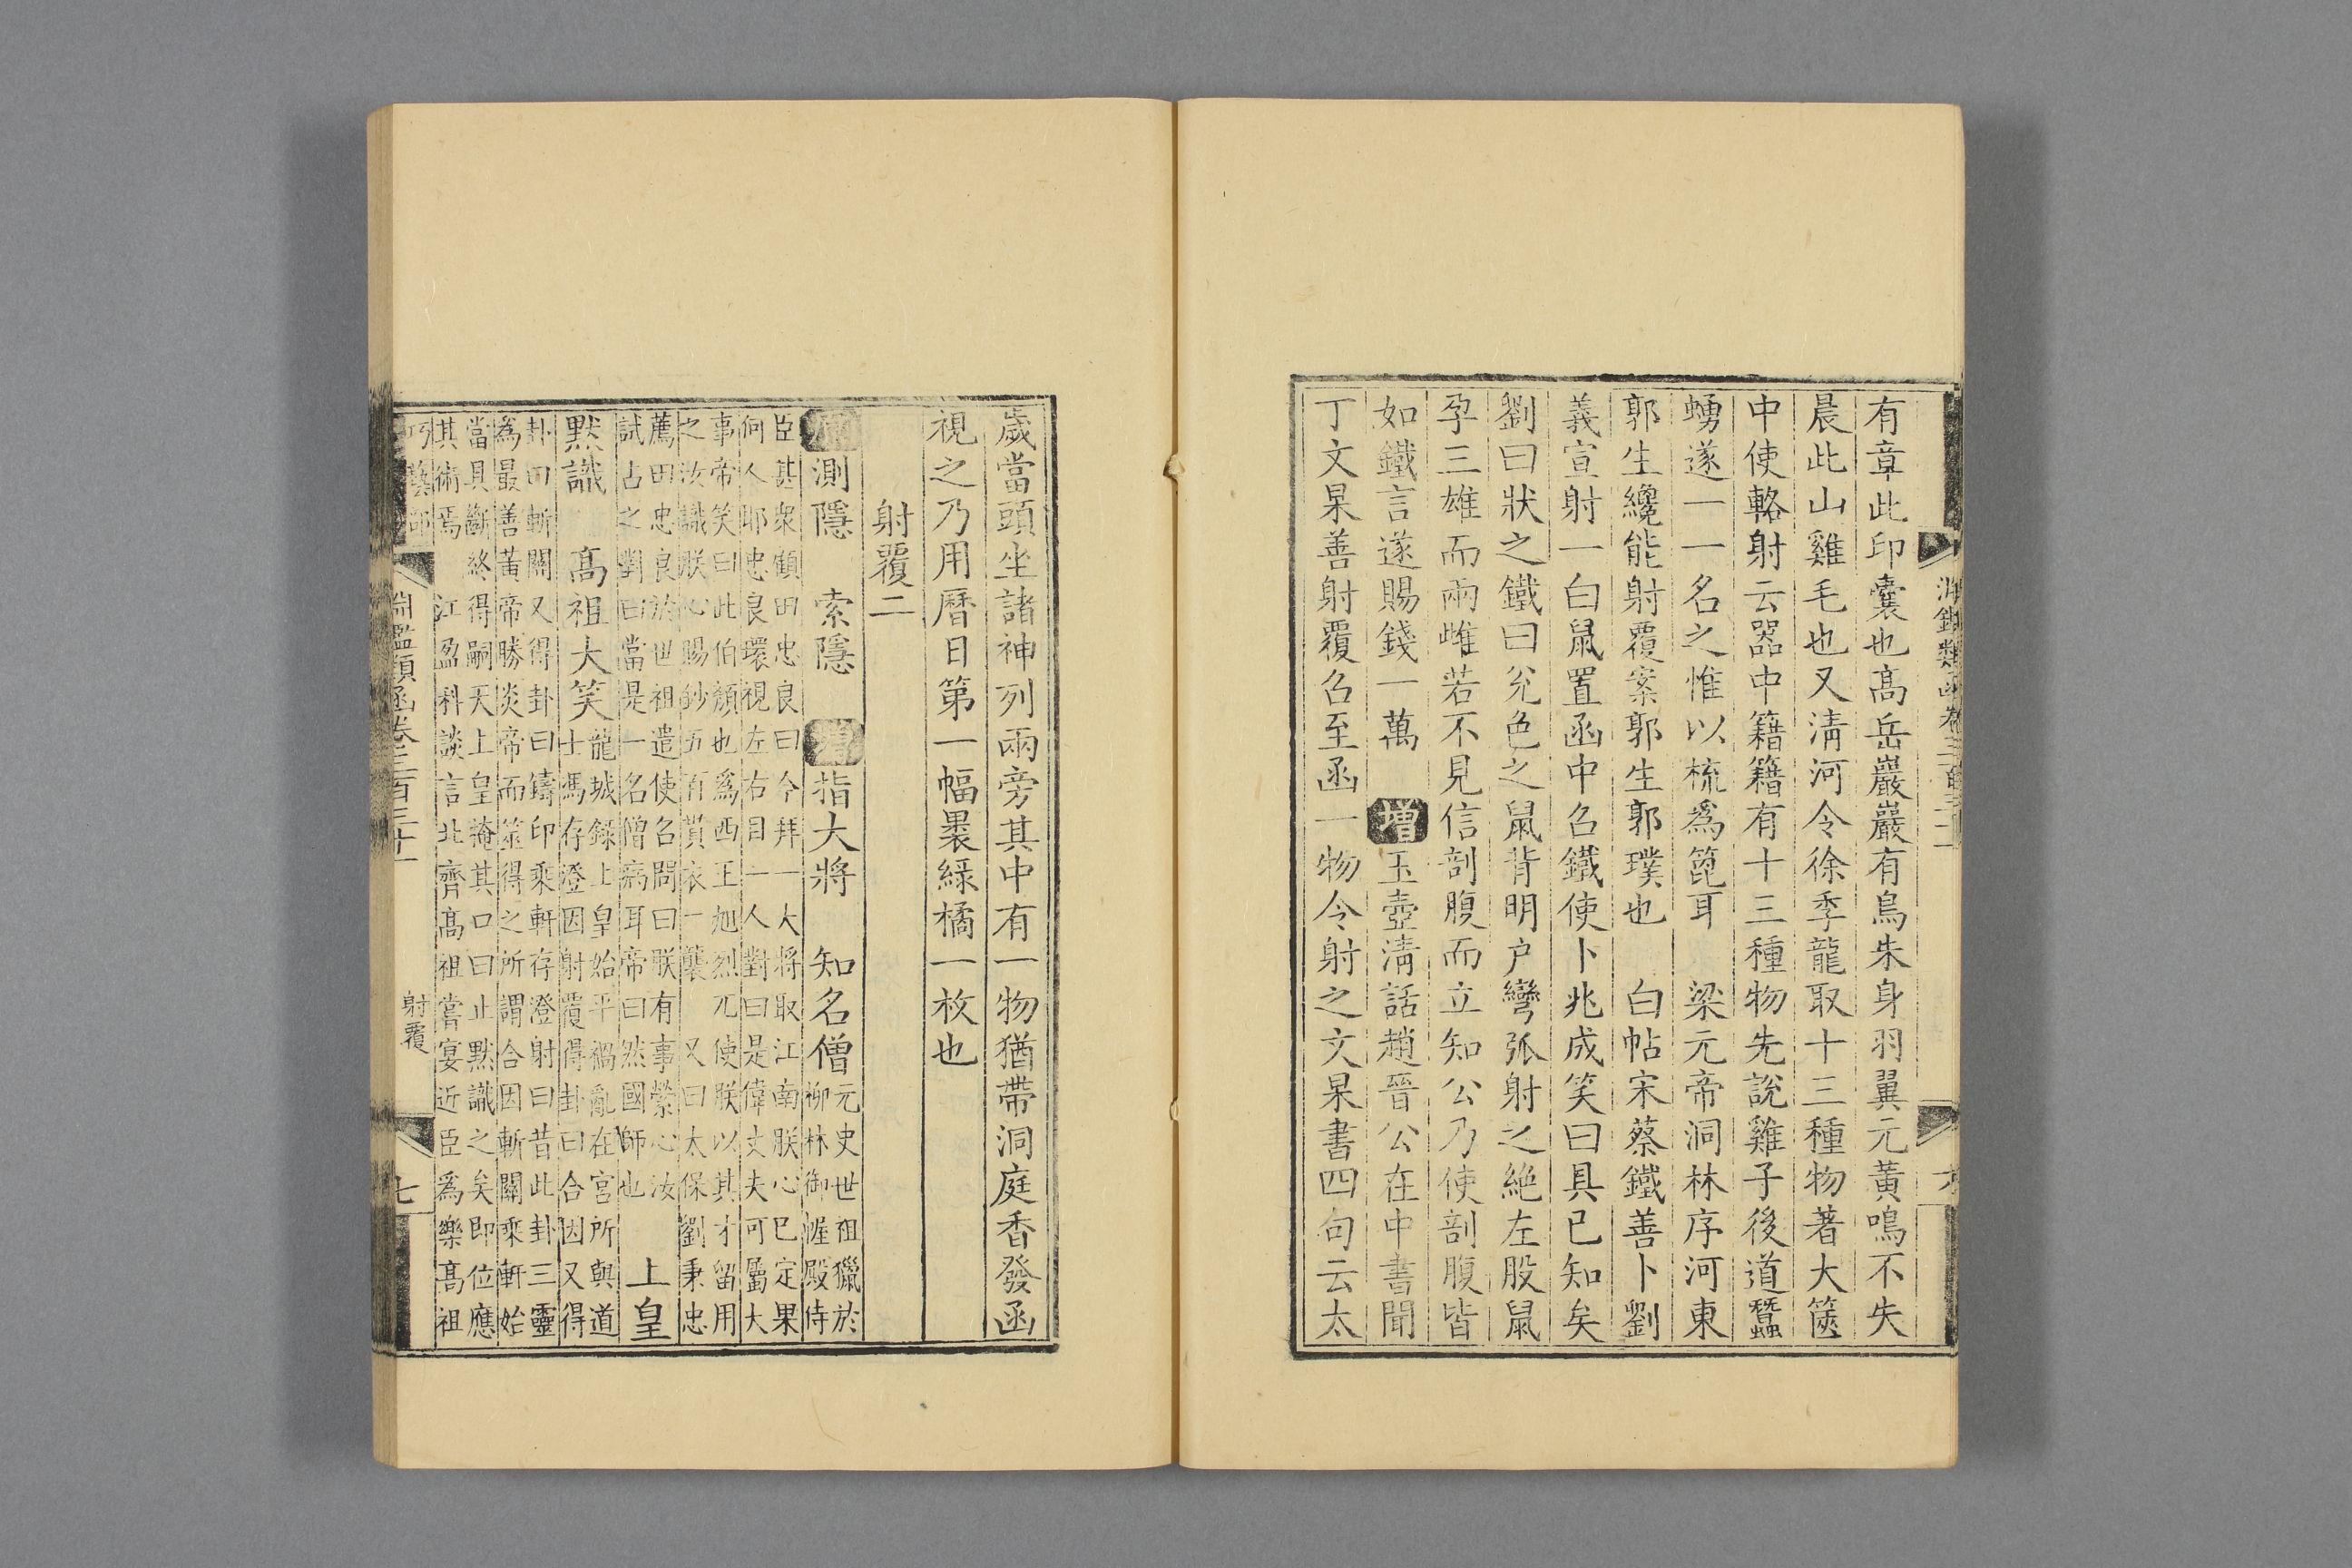 有章此印囊也高岳巖巖有鳥朱身羽翼元黃鳴不失
晨此山雞毛也又清河令徐季龍取十三種物著大篋
中使輅射云器中籍籍有十三種物先說雞子後道蠶
蛹遂一一名之惟以梳爲篦耳　梁元帝洞林序河東
郭生纔能射覆案郭生郭璞也　白帖宋蔡鐵善卜劉
義宣射一白鼠置函中召鐵使卜兆成笑曰具已知矣
劉曰狀之鐵曰兌色之鼠背明户彎弧射之絶左股鼠
孕三雄而兩雌若不見信剖腹而立知公乃使剖腹皆
如鐵言遂賜錢一萬　增玉壺清話趙晉公在中書聞
丁文杲善射覆召至函一物令射之文杲書四句云太
歲當頭坐諸神列兩旁其中有一物猶帶洞庭香發函
視之乃用曆日第一幅裹綠橘一枚也
射覆二
原測隱　索隱　增指大將　知名僧
元史世祖獵於
柳林御渥殿侍
臣甚衆顧田忠良曰今拜一大將取江南朕心已定果
何人耶忠良環視左右目一人對曰是偉丈夫可屬大
事帝笑曰此伯顏也爲西王旭烈兀使朕以其才留用
之汝識朕心賜鈔五百貫衣一襲　又曰太保劉秉忠
薦田忠良於世祖遣使召問曰朕有事縈心汝
試占之對曰當是一名僧病耳帝曰然國師也
上皇
默識　高祖大笑
龍城錄上皇始平禍亂在宮所與道
士馮存澄因射覆得卦曰合因又得
卦曰斬關又得卦曰鑄印乘軒存澄射曰昔此卦三靈
爲最善黃帝勝炎帝而筮得之所謂合因斬關乘軒始
當具斷終得嗣天上皇掩其口曰止默識之矣即位應
其術焉　江盈科談言北齊高祖嘗宴近臣爲樂高祖
淵鑑類函卷三百三十一
射覆
七